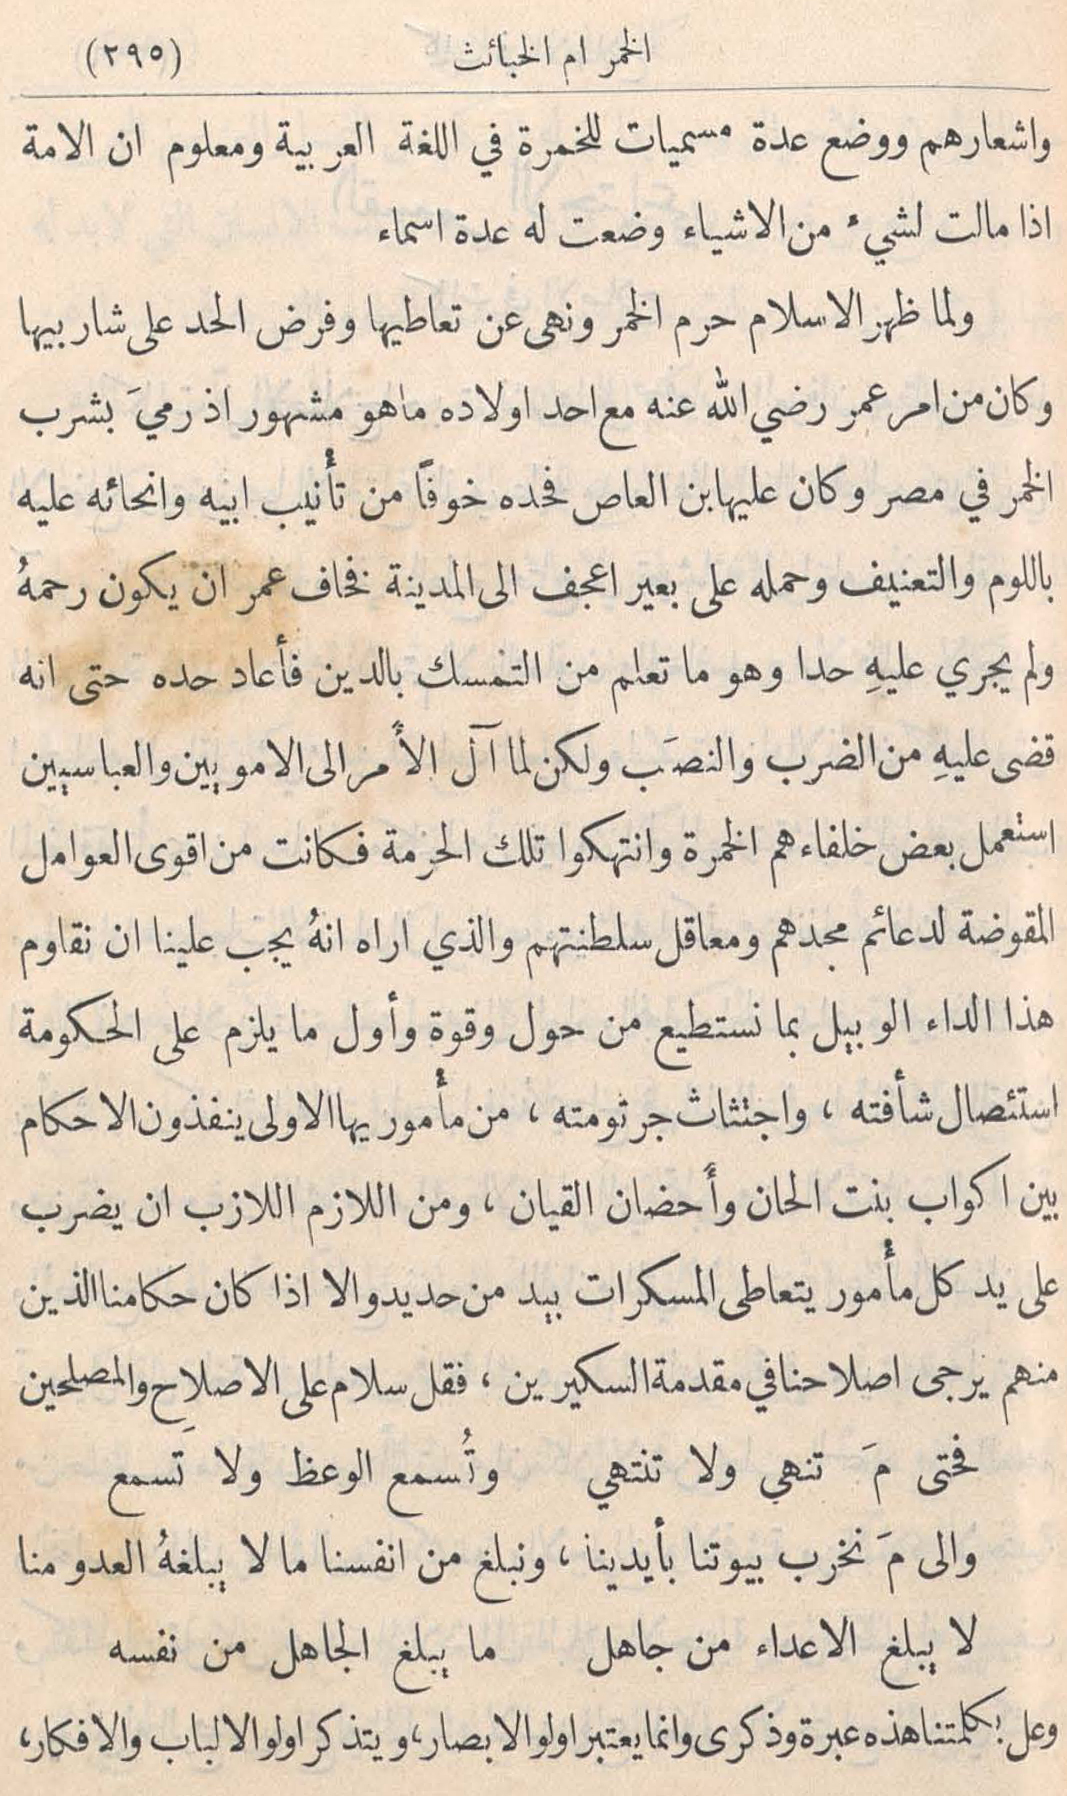 الخمر ام الخبائث (٢٩٥)
واشعارهم ووضع عدة مسميات للخمرة في اللغة العربية ومعلوم ان الامة
اذا مالت لشيء من الاشياء وضعت له عدة اسماء
ولما ظهر الاسلام حرم الخمر ونهى عن تعاطيها وفرض الحد على شاربيها
وكان من امر عمر رضي الله عنه مع احد اولاده ماهو مشهور اذ رميَ بشرب
الخمر في مصر وكان عليها ابن العاص فحده خوفاً من تأنيب ابيه وانحائه عليه
باللوم والتعنيف وحمله على بعير اعجف الى المدينة فخاف عمر ان يكون رحمهُ
ولم يجري عليهِ حدا وهو ما تعلم من التمسك بالدين فأعاد حده حتى انه
قضى عليهِ من الضرب والنصَب ولكن لما آل الأَمر الى الامويين والعباسيين
استعمل بعض خلفاءهم الخمرة وانتهكوا تلك الحرمة فكانت من اقوى العوامل
المقوضة لدعائم مجدهم ومعاقل سلطنتهم والذي اراه انهُ يجب علينا ان نقاوم
هذا الداء الوبيل بما نستطيع من حول وقوة وأول ما يلزم على الحكومة
استئصال شأفته ، واجتثاث جرثومته ، من مأموريها الاولى ينفذون الاحكام
بين اكواب بنت الحان وأَحضان القيان ، ومن اللازم اللازب ان يضرب
على يد كل مأمور يتعاطى المسكرات بيد من حديد والا اذا كان حكامنا الذين
منهم يرجى اصلاحنا في مقدمة السكيرين ، فقل سلام على الاصلاح والمصلحين
فحتى مَ تنهي ولا تنتهي وتُسمع الوعظ ولا تَسمع
والى مَ نخرب بيوتنا بأيدينا ، ونبلغ من انفسنا ما لا يبلغهُ العدو منا
لا يبلغ الاعداء من جاهل ما يبلغ الجاهل من نفسه
وعل بكلمتنا هذه عبرة وذكرى وانما يعتبر اولو الابصار، ويتذكر اولو الالباب والافكار،